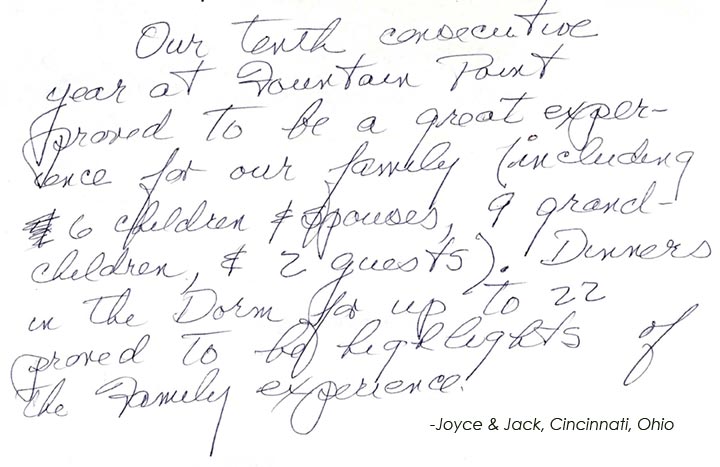 Our tenth consecutive
year at Fountain Point
proved to be a great exper-
ience for our family (including
6 children & spouses, 9 grand-
children, & 2 guests). Dinners
in the Dorm for up to 22
proved to be highlights of
the Family experience.
-Joyce & Jack, Cincinnati, Ohio